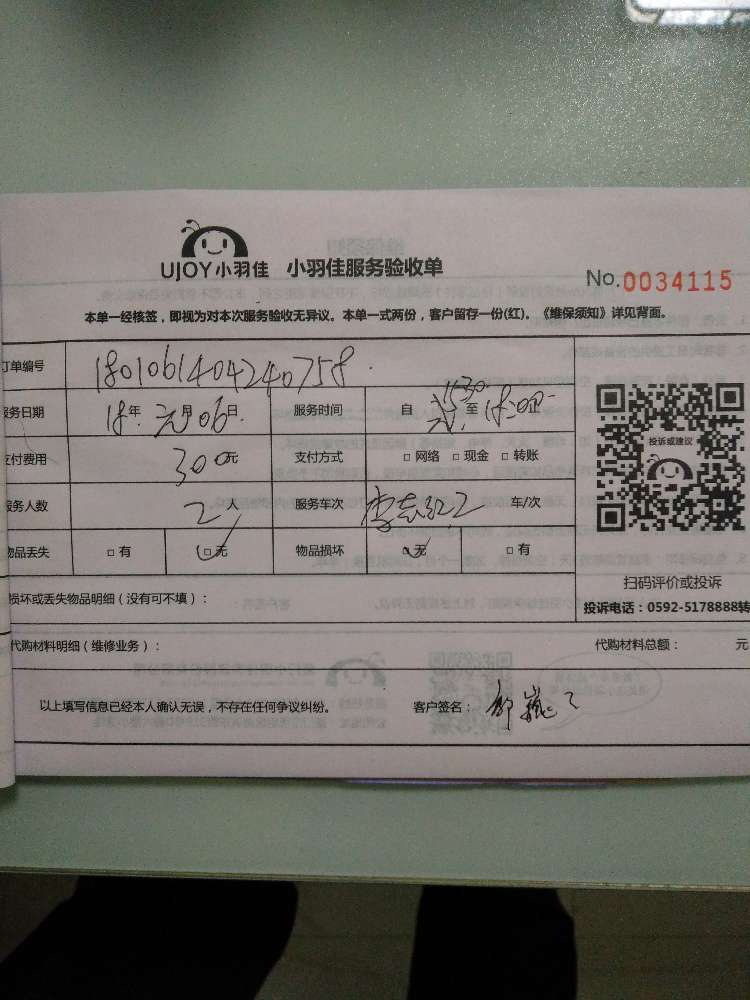 UJOY小羽佳 小羽佳服务验收单
No.0034115
本单一经核签，即视为对本次服务验收无异议。本单一式两份，客户留存一份(红)。《维保须知》详见背面。
订单编号 1801061404240758
服务日期 18年 元月06日 服务时间 自 1530 至 18:00
支付费用 300元 支付方式 □ 网络 □ 现金 □ 转账
服务人数 2人 服务车次 李志红2 车/次
投诉或建议
物品丢失 □ 有 □ 无 物品损坏 □ 无 □ 有
扫码评价或投诉
投诉电话：0592-5178888转
损坏或丢失物品明细（没有可不填）：
代购材料明细（维修业务）： 代购材料总额： 元
以上填写信息已经本人确认无误，不存在任何争议纠纷。 客户签名：